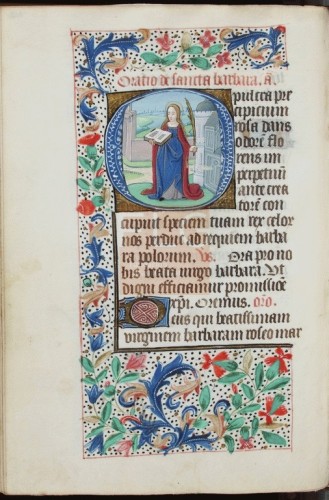 Oratio de sancta barbara. a.
O pulcra pre
cipicium
rosa dans
odorē flo
rens im
perpetuū
ante crea
torē con
cupiuit speciem tuam rex celor
nos perduc ad requiem barba
ra polorum. Vs. Ora pro no
bis beata uirgo barbara. Ut
digni efficiamur promissiōe
xp̄i. Oremus. oro.
Deus qui beatissimam
virginem barbaram roseo mar